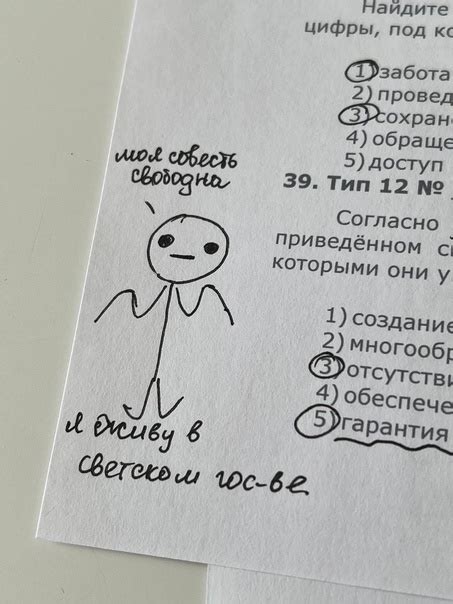 Найдите
цифры, под ко
1) забота
2) провед
3) сохран
4) обраще
5) доступ
39. Тип 12 №
Согласно
приведённом с
которыми они у
1) создание
2) многообр
3) отсутстви
4) обеспече
5) гарантия
моя совесть
свободна
я живу в
светском гос-ве